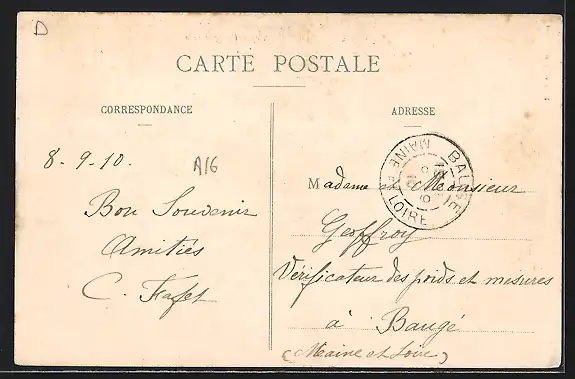 D
CARTE POSTALE
CORRESPONDANCE
ADRESSE
8-9-10.
A16
Bon Souvenir
Amitiés
C. Fafet
BAUGÉ
MAINE ET LOIRE
Madame et Monsieur
Geoffroy
Vérificateur des poids et mesures
à Baugé
(Maine et Loire)